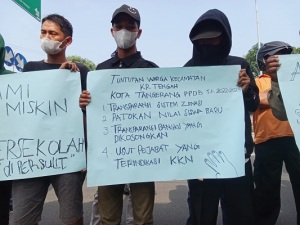 AMI
MISKIN
ERSEKOLAH
DIPERSULIT"
TUNTUTAN WARGA KECAMATAN
KR TENGAH
KOTA TANGERANG PPDB
1 TRANSPARANSI SISTEM ZONASI
2 PATOKAN NILAI SISWA BARU
3 TRANSPARANSI BANGKU YANG
DIKOSONGKAN
4 USUT PEJABAT YANG
TERINDIKASI KKN